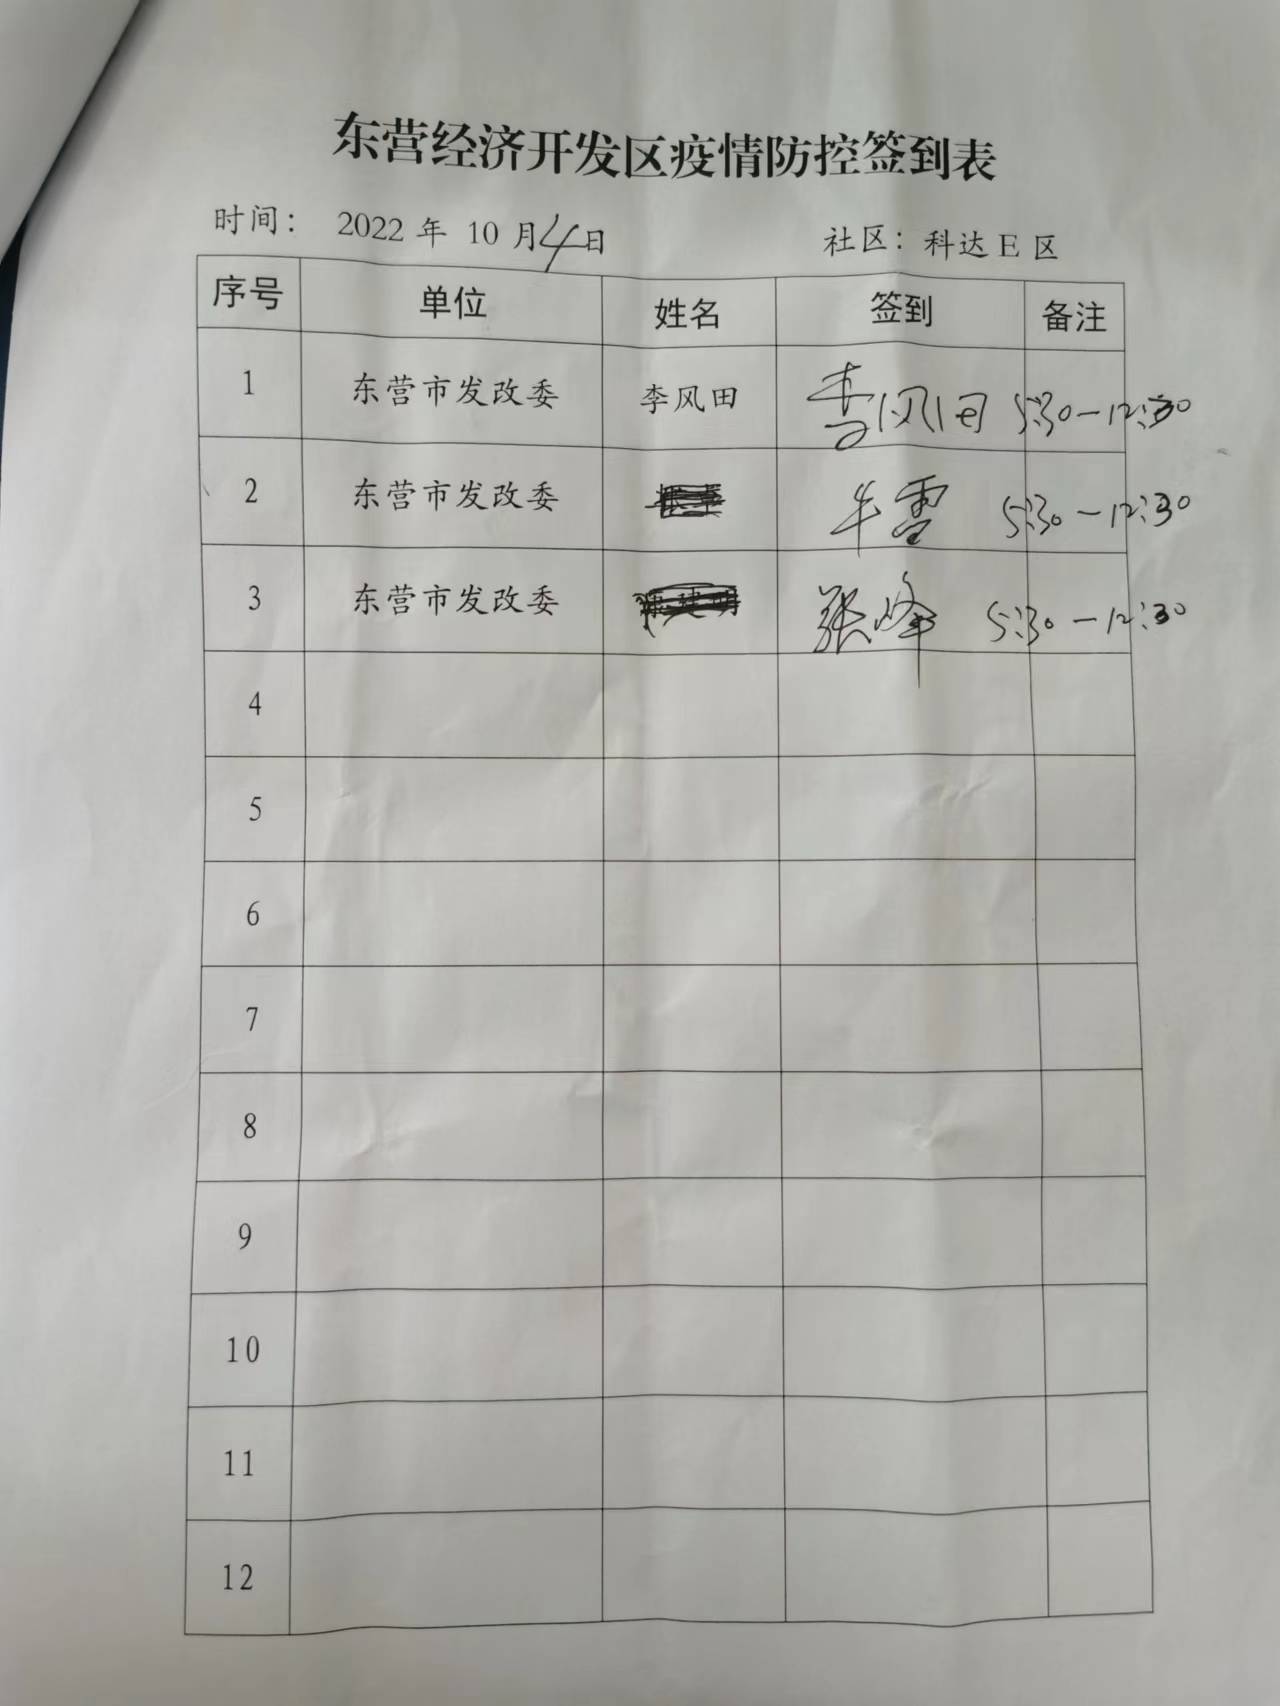 东营经济开发区疫情防控签到表
时间： 2022 年 10 月 4 日 社区：科达 E 区
序号 单位 姓名 签到 备注
1 东营市发改委 李风田 李风田 5:30-12:30
2 东营市发改委 牛雪 5:30-12:30
3 东营市发改委 张峰 5:30-12:30
4
5
6
7
8
9
10
11
12